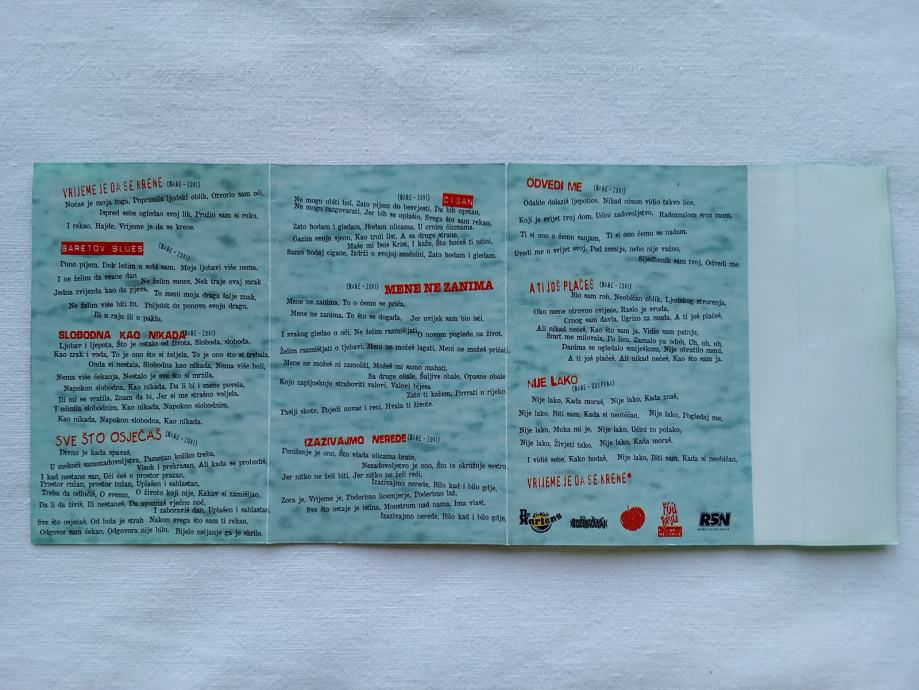 VRIJEME JE DA SE KRENE (BARE - ZORI)
Noćas je moja tuga, Poprimila ljudski oblik, Otvorio sam oči,
Ispred sebe ugledao svoj lik, Pružio sam si ruku,
I rekao, Hajde, Vrijeme je da se krene.
BARETOV BLUES (BARE - ZORI)
Puno pijem, Dok ležim u sobi sam, Moje ljubavi više nema,
I ne želim da svane dan Ne želim sunce, Nek traje ovaj mrak
Jedna zvijezda kao da pjeva, To meni moja draga šalje znak,
Ne želim više biti tu, Poljubit ću ponovo svoju dragu,
Ili u raju ili u paklu.
SLOBODNA KAO NIKADA (BARE - ZORI)
Ljubav i ljepota, Što je ostalo od života, Sloboda, sloboda,
Kao zrak i voda, To je ono što si željela, To je ono što si trebala,
Onda si nestala, Slobodna kao nikada, Nema više boli,
Nema više čekanja, Nestalo je sve što si mrzila,
Napokon slobodna, Kao nikada, Da li bi i mene povela,
Ili mi se vratila, Znam da bi, Jer si me strašno voljela,
I učinila slobodnim, Kao nikada, Napokon slobodnim,
Kao nikada, Napokon slobodna, Kao nikada.
SVE ŠTO OSJEĆAŠ (BARE - ZORI)
Divno je kada spavaš,
U mekoći samozadovoljstva, Pametan koliko treba,
Visok i prekrasan, Ali kada se probudiš,
I kad nestane san, Ući ćeš u prostor prazan,
Prostor ružan, prostor tužan, Uplašen i sablastan,
Treba da odlučiš, O svemu, O životu koji nije, Kakav si zamišljao,
Da li da živiš, Ili nestaneš, Da upoznaš vječnu noć,
I zaboraviš dan, Uplašen i sablastan,
Sve što osjećaš, Od bola je strah Nakon svega što sam ti rekao,
Odgovor sam čekao, Odgovora nije bilo, Bijelo usijanje ga je skrilo.
(BARE - ZORI) CIGAN
Ne mogu ubiti bol, Zato pijem do besvjesti, Da bih opstao,
Ne mogu razgovarati, Jer bih se uplašio, Svega što sam rekao,
Zato hodam i gledam, Hodam ulicama, U crnim čizmama,
Gazim svoju sjenu, Kao truli list, A sa druge strane,
Maše mi Isus Krist, I kaže, Što hoćeš ti učini,
Samo hodaj cigane, Izdrži u svojoj mučnini, Zato hodam i gledam.
(BARE - ZORI) MENE NE ZANIMA
Mene ne zanima, To o čemu se priča,
Mene ne zanima, To što se događa, Jer uvijek sam bio isti,
I svakog gledao u oči, Ne želim razmišljati, O novom pogledu na život,
Želim razmišljati o ljubavi, Meni ne možeš lagati, Meni ne možeš pričati,
Mene ne možeš zamoliti, Možeš mi samo mahati,
Sa druge obale, Šaljive obale, Opasne obale
Koju zapljuskuju strahoviti valovi, Valovi bijesa
Zato ti kažem, Povrati u rijeku
Pasiji skote, Pojedi novac i reci, Hvala ti živote.
IZAZIVAJMO NEREDE (BARE - ZORI)
Poniženje je ono, Što vlada ulicama brate,
Nezadovoljstvo je ono, Što te okružuje sestro
Jer nitko ne želi biti, Jer nitko ne želi reći,
Izazivajmo nerede, Bilo kad i bilo gdje,
Zora je, Vrijeme je, Poderimo licemjerje, Poderimo laž,
Sve što ostaje je istina, Monstrum nad nama, Ima vlast,
Izazivajmo nerede, Bilo kad i bilo gdje,
ODVEDI ME (BARE - ZORI)
Odakle dolaziš ljepotice, Nikad nisam vidio takvo lice,
Koji je svijet tvoj dom, Učini zadovoljstvo, Radoznalom srcu mom,
Ti si ono o čemu sanjam, Ti si ono čemu se nadam,
Uvedi me u svijet svoj, Pod zemlju, nebo nije važno,
Sljedbenik sam tvoj, Odvedi me.
A TI JOŠ PLAČEŠ (BARE - ZORI)
Bio sam rob, Neobičan oblik, Ljudskog stvorenja,
Oko mene otrovno cvijeće, Raslo je svuda,
Crnog sam đavla, Ugrizo za muda, A ti još plačeš,
Ali nikad nećeš, Kao što sam ja, Vidio sam patnju,
Smrt me milovala, Po licu, Zamalo pa odoh, Uh, uh, uh,
Danima se ogledalo smiješkom, Nije obratilo meni,
A ti još plačeš, Ali nikad nećeš, Kao što sam ja.
NIJE LAKO
Nije lako, Kada moraš, Nije lako, Kada znaš,
Nije lako, Biti sam, Kada si neobičan, Nije lako, Pogledaj me,
Nije lako, Muka mi je, Nije lako, Učini to polako,
Nije lako, Živjeti tako, Nije lako, Kada moraš,
I vidiš sebe, Kako hodaš, Nije lako, Biti sam, Kada si neobičan,
VRIJEME JE DA SE KRENE*
Dr Martens
RSN